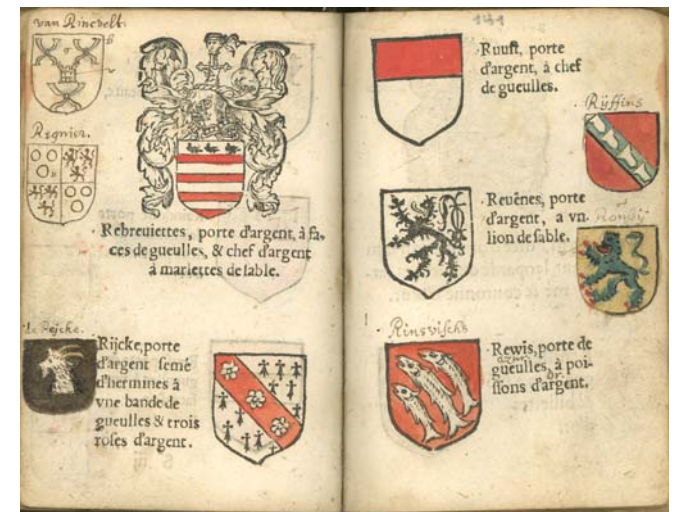 van Rinevelt.
Regnier.
Rebreuiettes, porte d'argent, à fa-
ces de gueulles, & chef d'argent
à marlettes de sable.
de Rejcke.
Rijcke, porte
d'argent semé
d'hermines à
vne bande de
gueulles & trois
roses d'argent.
141
Ruust, porte
d'argent, à chef
de gueulles.
Rÿffins
Reuênes, porte
d'argent, a vn
lion de sable.
Rinsvischs
Rewis, porte de
gueulles, à poi-
azur
ssons d'argent.
or